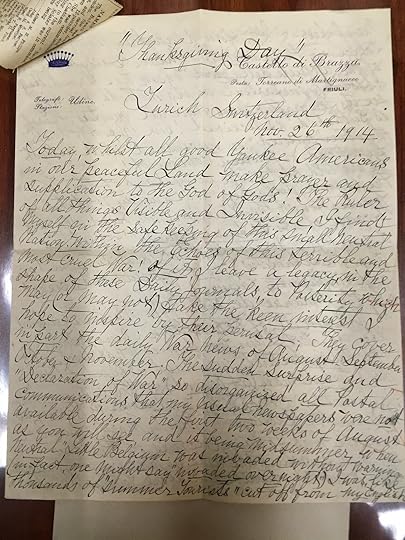 "Thanksgiving Day"
Castello di Brazzà
Posta: Torreano di Martignacco
FRIULI.
Telegrafi - Udine.
Stazione -
Zurich Switzerland
Nov. 26th 1914
Today, whilst all good Yankee Americans
in our peaceful Land make prayer and
supplication to the God of Gods! The Ruler
of all things Visible and Invisible I find
Myself in the safe keeping of this small Neutral
Nation, within the Echoes of this terrible and
most cruel War! of 1914 leave a legacy in the
shape of these Daily journals, to Posterity, which
May or may not) take the keen interest, I
hope to inspire by their perusal. They cover
in part the daily War News of August September
October & November. The sudden Surprise and
"Declaration of War" so disorganized all Postal
Communications that my usual newspapers were not
available during the first two weeks of August
as you will see, and is being Midsummer, when
Neutral Little Belgium was invaded without warning
in fact, one might say invaded overnight) I was like
thousands of "Summer Tourists" cut off from my English